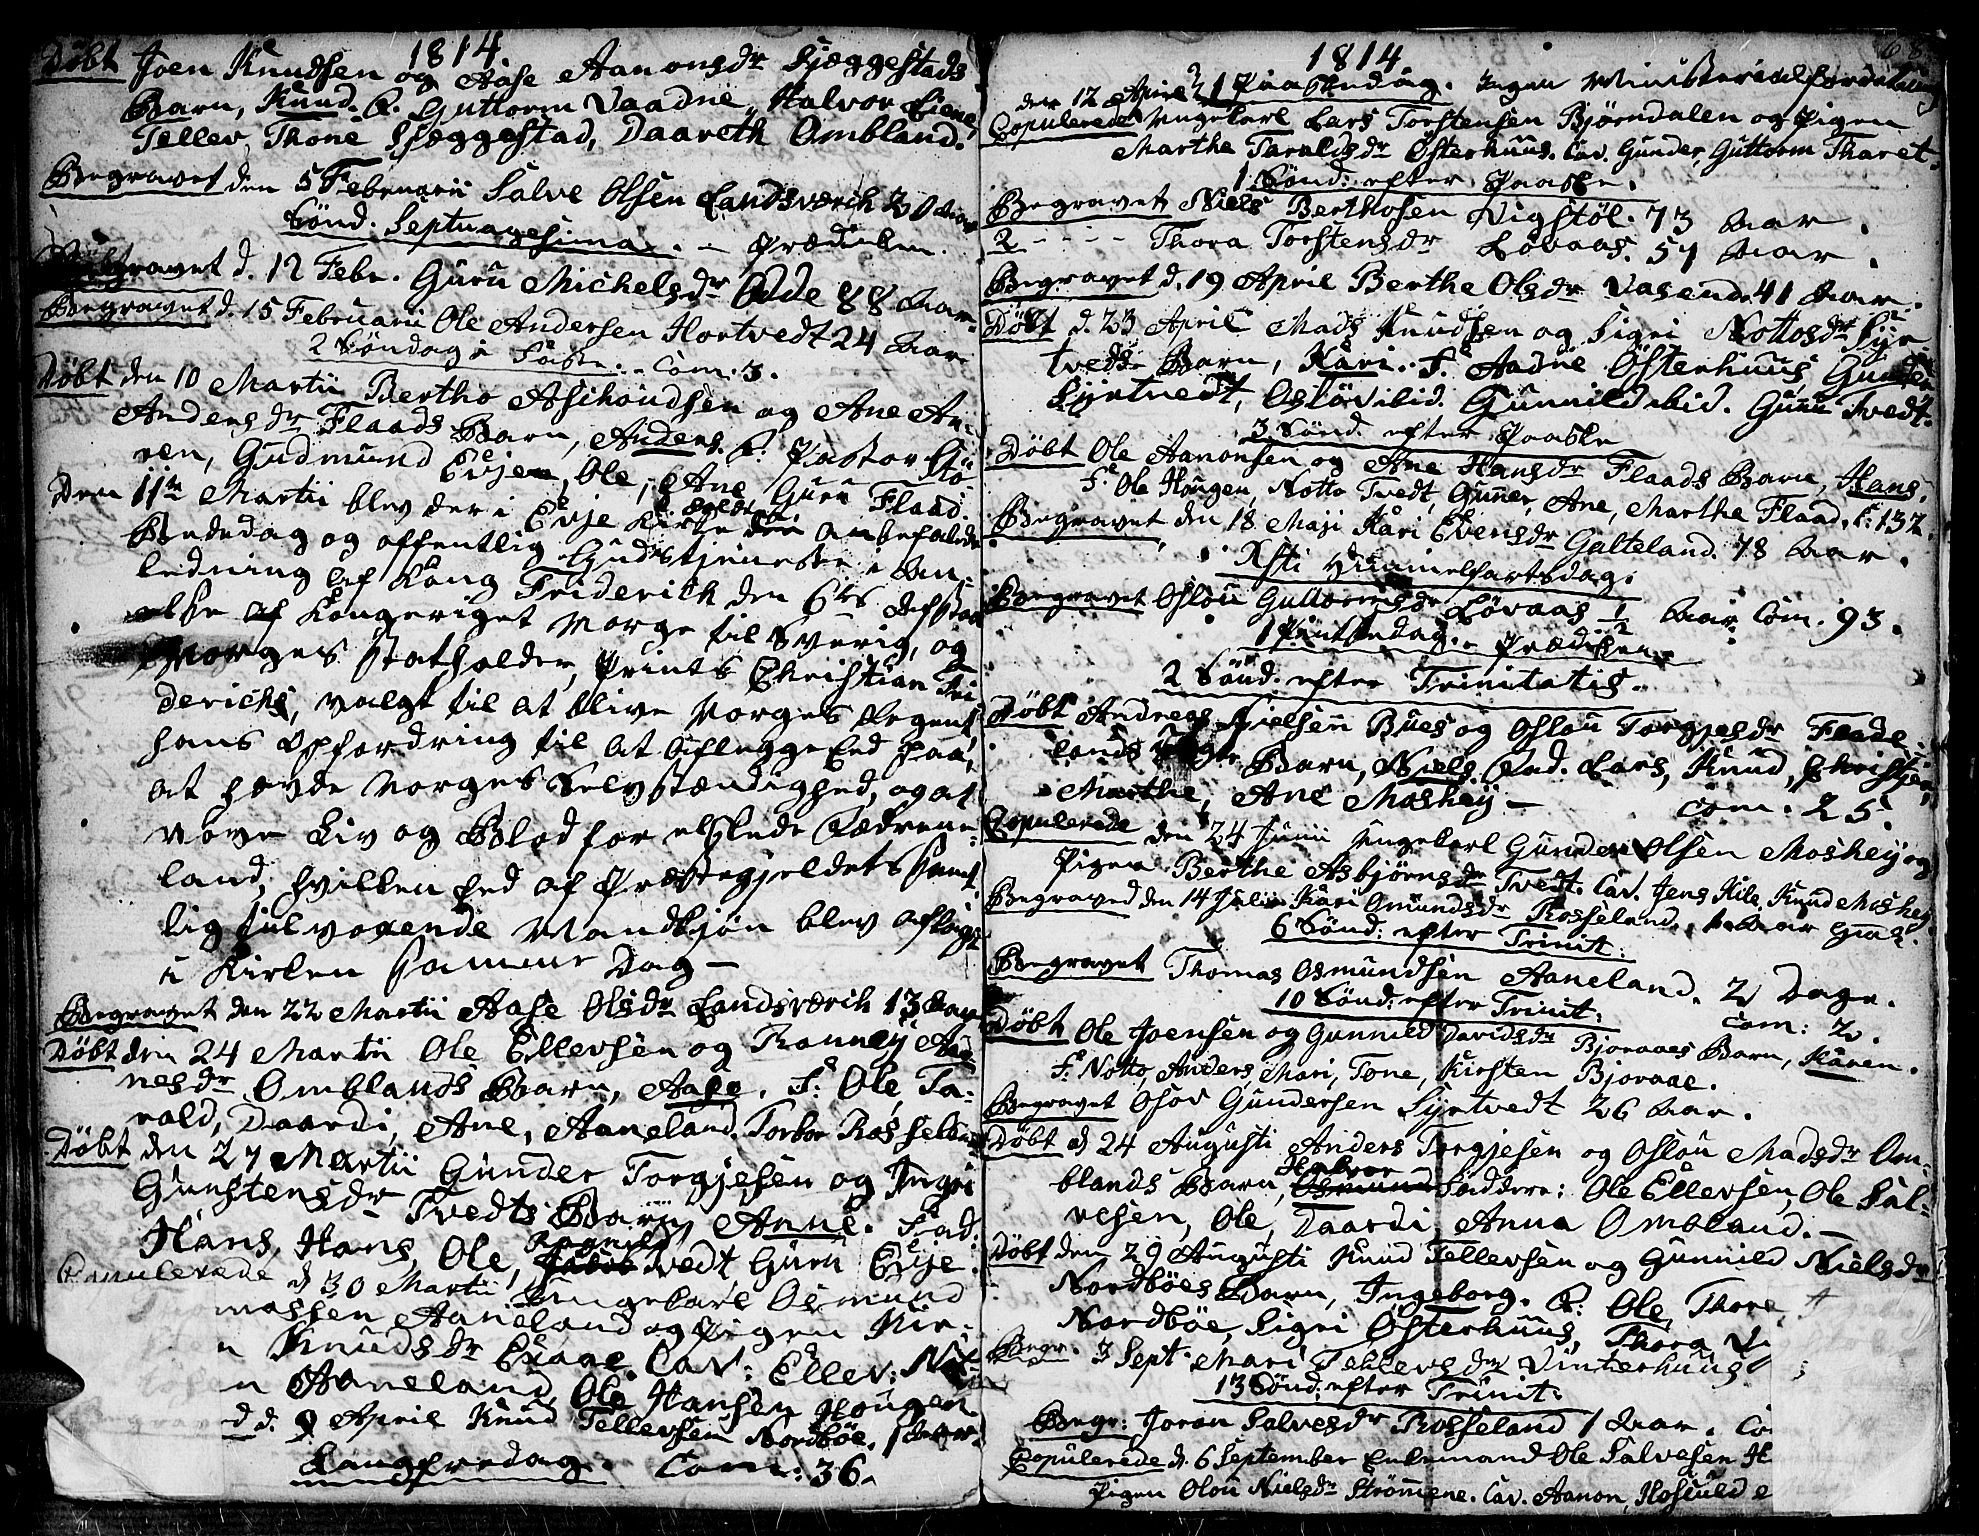 1814.
Döbt Joen Knudsen og Aase Aanonsdr Skjæggestads
Barn, Knud. F. Guttorm Vaadne, Halvor Eiene,
Tellev, Thone Skjæggestad, Daareth Ombland.
Begravet den 5 Februarii Salve Olsen Landsværk 20 Aar
Sönd. Septuagesima. - Prædiken.
Begravet d. 12 Febr. Guru Michelsdr Odde 88 Aar.
Begravet d. 15 Februarii Ole Andersen Hortvedt 24 Aar
2 Söndag i Faste. Com. 3.
Döbt den 10 Martii Bertho Aschoudsen og Ane An-
Andersdr Flaads Barn, Anders. F. Pastor
ren, Gudmund Evje, Ole, Ane, Guru Flaad.
Den 11te Martii blev der i Evje Kirke holdet en anbefalede
Bededag og offentlig Gudstjeneste i An-
ledning af Kong Friderich den 6tes Afstaa
else af Kongeriget Norge til Sverig, og
Norges Statholder, Prints Christian Fri
derichs, valgt til at blive Norges Regent,
hans Opfordring til at aflægge Eed paa,
at hævde Norges Selvstændighed, og at
vove Liv og Blod for elskede Fædrene-
land, hvilken Eed af Præstegjeldets samt
lig tilvoxende Mandkjön blev aflagt
i Kirken samme Dag -
Begravet den 22 Martii Aase Olsdr Landsværk 13 Aar
Döbt den 24 Martii Ole Ellevsen og Ronnej Aa
nesdr Omblands Barn, Aase. F. Ole, Ta-
rald, Daardi, Ane, Aaneland. Torbor Rosseland
Döbt den 27 Martii Gunder Torgjesen og Ingri
Gunstensdr Tvedts Barn, Anne. Fad.
Hans, Hans, Ole, Ragnild Tvedt, Guru Evje.
Copulerede d 30 Martii Ungekarl Osmund
massen Aaneland og Pigen Kir-
n Knudsdr Evaae. Cav: Ellev,
n Aaneland, Ole Hansen Hougen
d d. 9 April Knud Tellevsen Nordböe. 1 Aar
Langfredag. Com: 36.
1814.
68
den 12 April 2 Paaskedag. Ingen Ministerial Forretning
Copulerede Ungekarl Lars Torstensen Björndalen og Pigen
Marthe Taraldsdr Österhuus. Cav. Gunder, Guttorm Tharet.
1 Sönd: efter Paaske.
Begravet Niels Berthosen Nigstöl. 73 Aar.
2 - - - - Thora Torstensdr Lövaas. 57 Aar.
Begravet d. 19 April Berthe Olsdr Vasend. 41 Aar.
Döbt d. 23 April Mads Knudsen og Sigri Nottosdr Syr-
tveds Barn, Kari. F. Aadne Österhuus, Gunder
Syrtvedt, Oslöv ibid. Gunnild ibid. Guru Tvedt.
3 Sönd. efter Paaske
Döbt Ole Aanonsen og Ane Hansdr Flaads Barn, Hans.
F. Ole Hougen, Notto Tvedt, Gunner, Ane, Marthe Flaad. C: 132.
Begravet den 18 Maji Kari Evensdr Galteland. 78 Aar.
Xsti Himmelfartsdag.
Begravet Oslou Guttormsdr Lövaas 1/2 Aar Com. 93.
1 Pintsedag. - Prædiken
2 Sönd. efter Trinitatis.
Döbt Andreas Nielsen Bues og Oslou Torgjesdr Flade-
Barn, Niels. Fad. Lars, Knud, Christjen,
Marthe, Ane Moshey - Com. 25.
Copulerede den 24 Junii Ungekarl Gunder Olsen Moshey og
Pigen Berthe Asbjörnsdr Tvedt. Cav. Jens Kile, Knud Moshey
Begraved den 14 Julii Kari Omundsdr Rosseland. Aar
6 Sönd: efter Trinit:
Begravet Thomas Osmundsen Aaneland. 2 Dage.
10 Sönd: efter Trinit: Com: 2.
Döbt Ole Joensen og Gunnild Davidsdr Bjoraaes Barn, Karen.
F. Notto, Anders, Mari, Tone, Kirsten Bjoraae.
Begravet Osov Gundersen Syrtvedt 26 Aar.
Döbt d 24 Augusti Anders Torgjesen og Oslou Madsdr Om-
blands Barn, Halvor Faddere: Ole Ellevsen, Ole Sal-
vesen, Ole, Daardi, Anna Ombland. -
Döbt den 29 Augusti Knud Tellevsen og Gunnild Nielsdr
Nordböes Barn, Ingeborg. F: Ole, Thore
Nordböe, Sigri Österhuus, Thora
Begr. 3 Sept. Mari Tellevsdr Vinterhuus
13 Sönd: efter Trinit:
Begr: Joran Salvesdr Rosseland 1 Aar. Co
Copulerede d. 6 September Enkemand Ole Salvesen H
Pigen Olou Nielsdr Strömmene. Cav. Aanon, Hoskuld